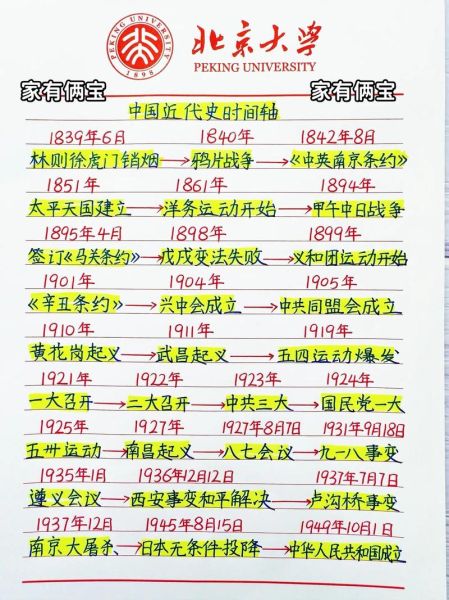 北京大学
PEKING UNIVERSITY
PEKING UNIVERSITY
1898
家有俩宝 家有俩宝
中国近代史时间轴
1839年6月 1840年 1842年8月
林则徐虎门销烟→鸦片战争→《中英南京条约》
1851年 1861年 1894年
太平天国建立→洋务运动开始→甲午中日战争
1895年4月 1898年 1899年
签订《马关条约》→戊戌变法失败→义和团运动开始
1901年 1904年 1905年
《辛丑条约》→兴中会成立→中共同盟会成立
1910年 1911年 1919年
黄花岗起义→武昌起义→五四运动爆发
1921年 1922年 1923年 1924年
一大召开→二大召开→中共三大→国民党一大
1925年 1927年 1927年8月7日 1931年9月18日
五卅运动→南昌起义→八七会议→九一八事变
1935年1月 1936年12月12日 1937年7月7日
遵义会议→西安事变和平解决→卢沟桥事变
1937年12月 1945年8月15日 1949年10月1日
南京大屠杀→日本无条件投降→中华人民共和国成立